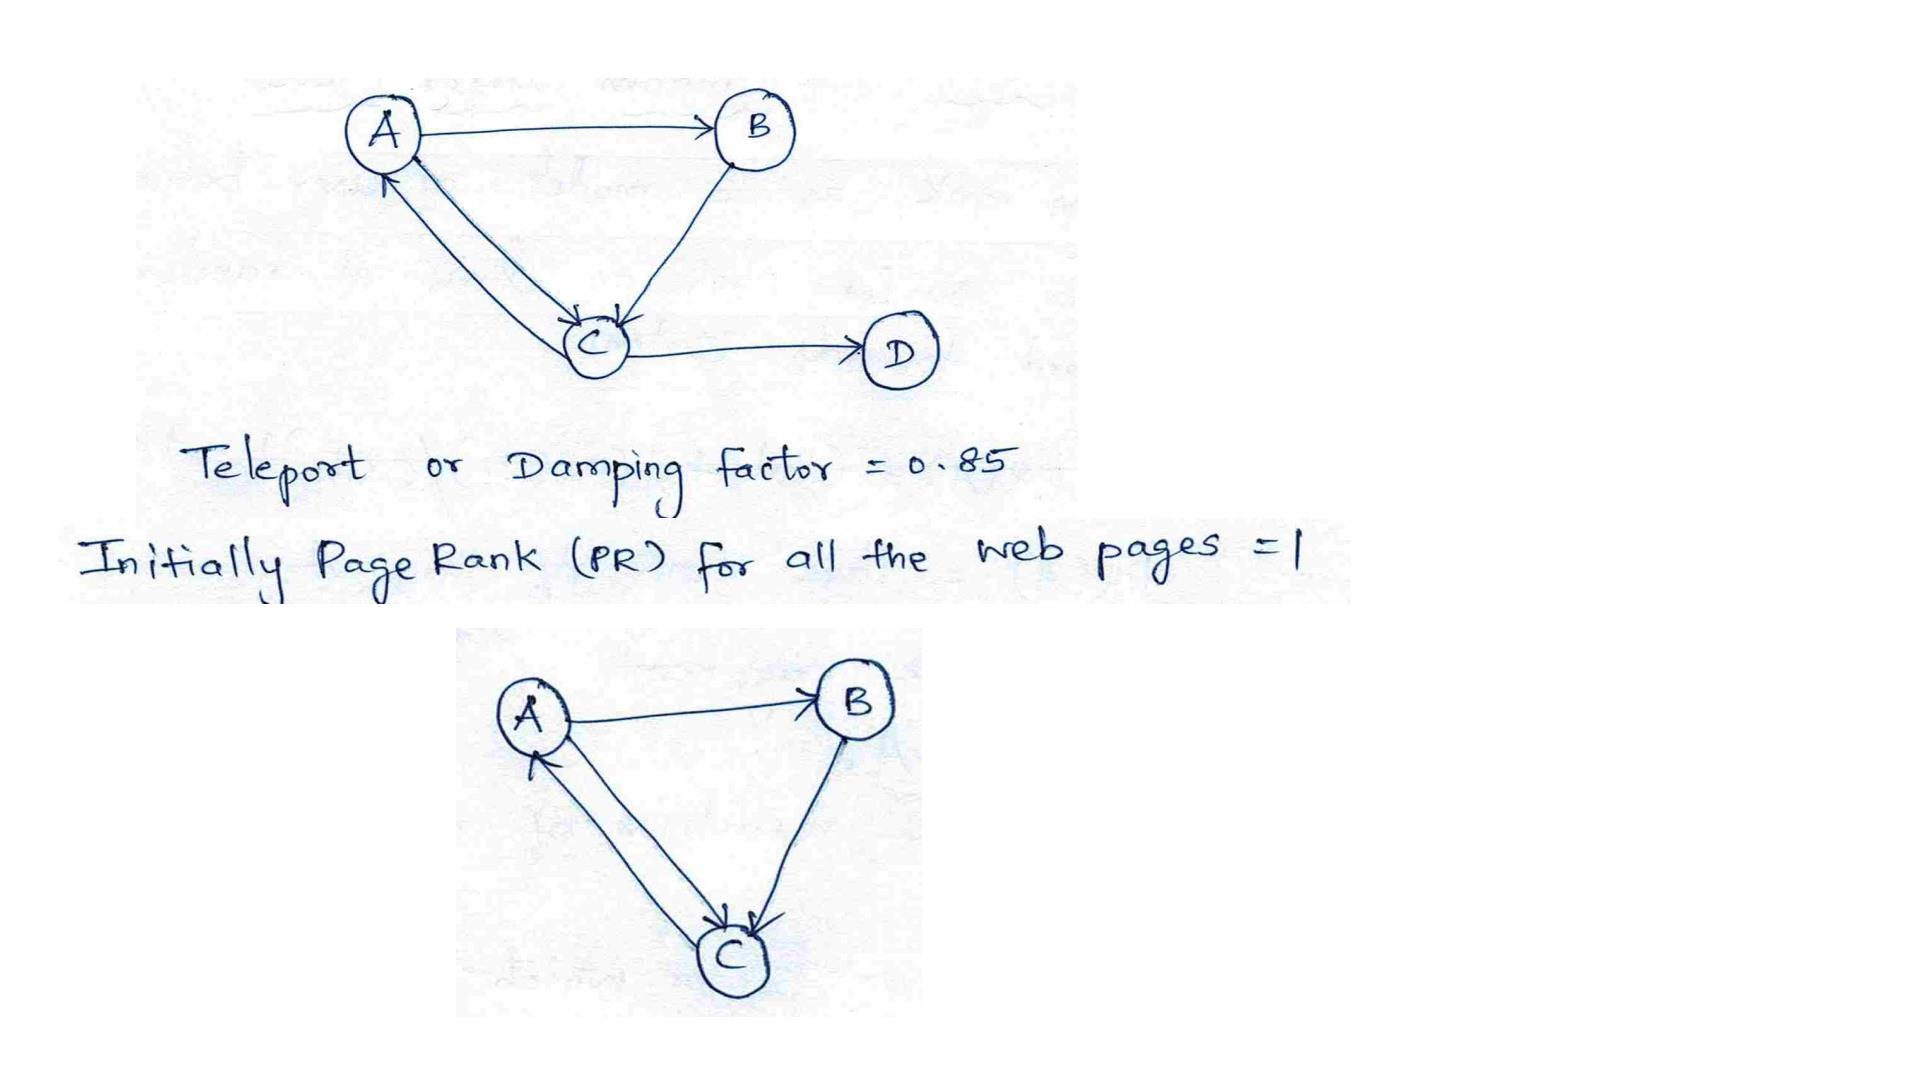 A
B
C
D
Teleport or Damping factor = 0.85
Initially Page Rank (PR) for all the web pages = 1
A
B
C